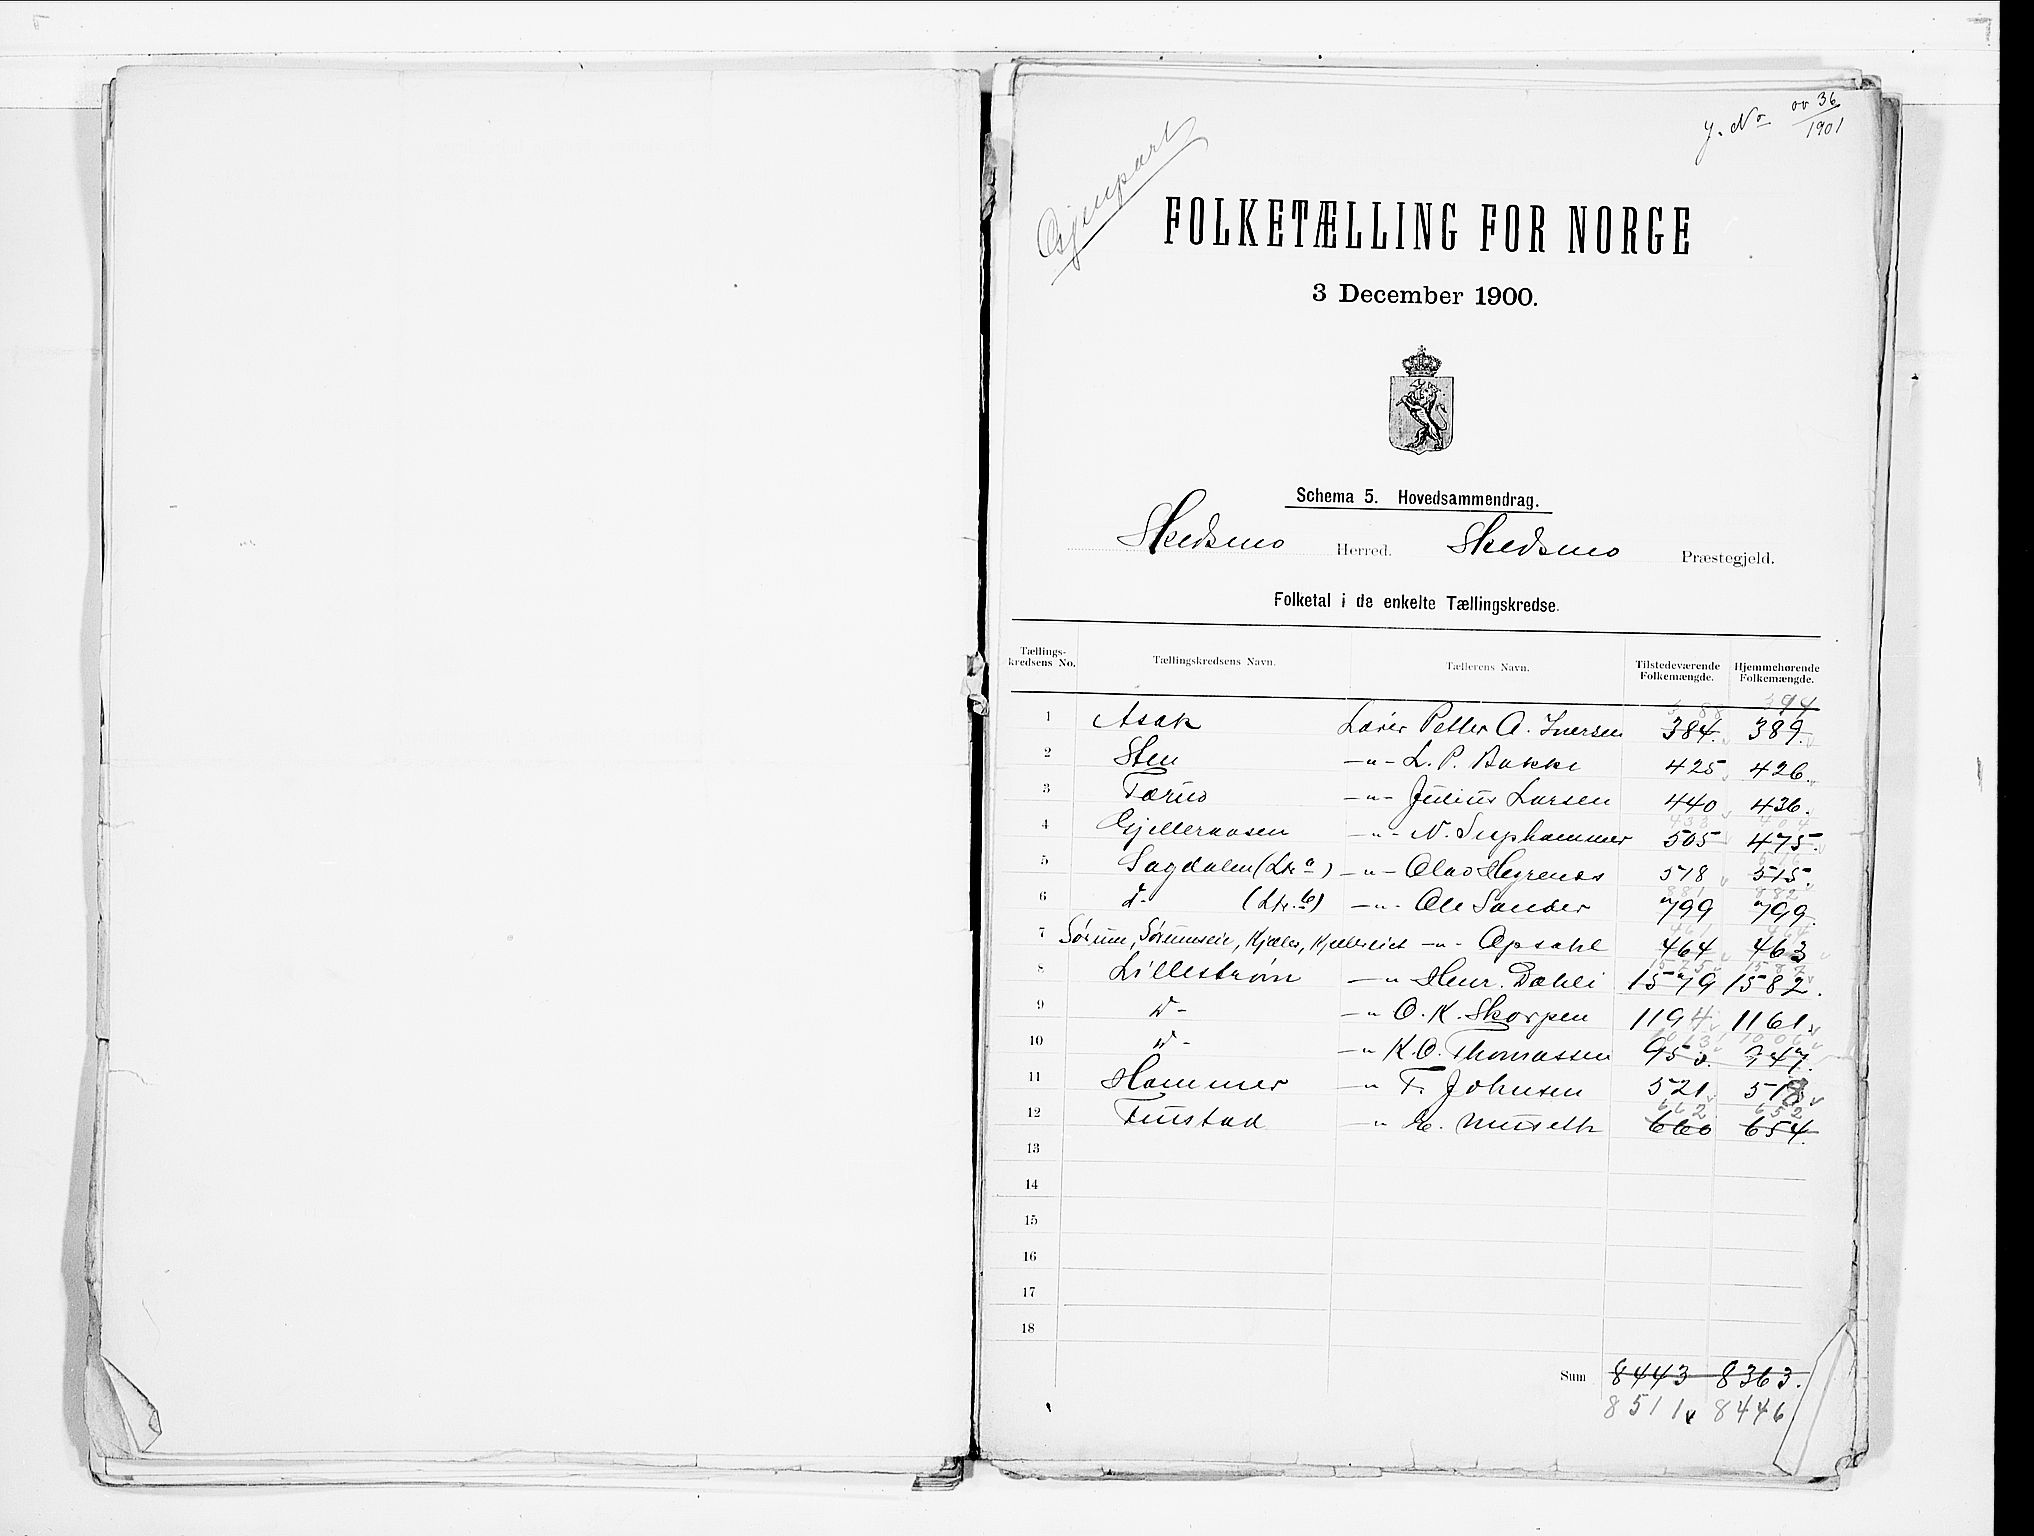 J. No 36
1901
Gjenpart
FOLKETÆLLING FOR NORGE
3 December 1900.
Schema 5. Hovedsammendrag.
Skedsmo Herred. Skedsmo Præstegjeld.
Folketal i de enkelte Tællingskredse.
Tællings-kredsens No. Tællingskredsens Navn. Tællerens Navn. Tilstedeværende Folkemængde. Hjemmehørende Folkemængde.
388 394
1 Asak Lærer Petter A. Iversen 384. 389.
2 Sten -"- L. P. Bakke 425 426.
3 Tærud -"- Julius Larsen 440 436.
433 404
4 Gjelleraasen -"- N. Suphammer 505 475.
516
5 Sagdalen (Ltr. a) -"- Olav Hegrenes 518 515.
881 882
6 d- (Ltr. b) -"- Ole Sander 799 799.
461 464
7 Sørum, Sørumseie, Kjeller, -"- Opsahl 464 463
1575 1587
8 Lillestrøm -" Henr. Dahli 1579 1582.
9 d- -" O. K. Skorpen 1194 1161.
1013 1006
10 d- -" K. O. Thomassen 950. 947.
11 Hammer -" F. Johnsen 521 518
662 652
12 Tuistad -" E. Museth 660 654.
13
14
15
16
17
18
Sum 8443 8363.
8511 8446